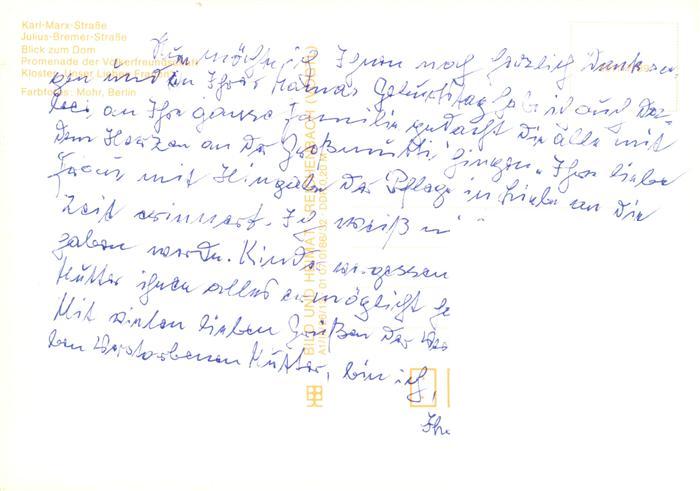 Karl-Marx-Straße
Julius-Bremer-Straße
Blick zum Dom
Promenade der Völkerfreundschaft
Kloster Unser Lieben Frauen
Farbfotos: Mohr, Berlin
Nun möchte ich Ihnen noch herzlich Dank sa-
gen und an Ihrer Mamas Geburtstag habe ich auch da-
bei, an Ihre ganze Familie gedacht die alle mit
dem Herzen an der Großmutti hingen. Ihre liebe
Frau mit Hingabe der Pflege in Liebe an die
Zeit erinnert. Ich weiß
haben werden. Kinder vergessen
Mutter ihnen alles ermöglicht
Mit vielen lieben Grüßen der
ben verstorbenen Mutter, bin ich,
Ihre
BILD UND HEIMAT REICHENBACH (VOGTL)